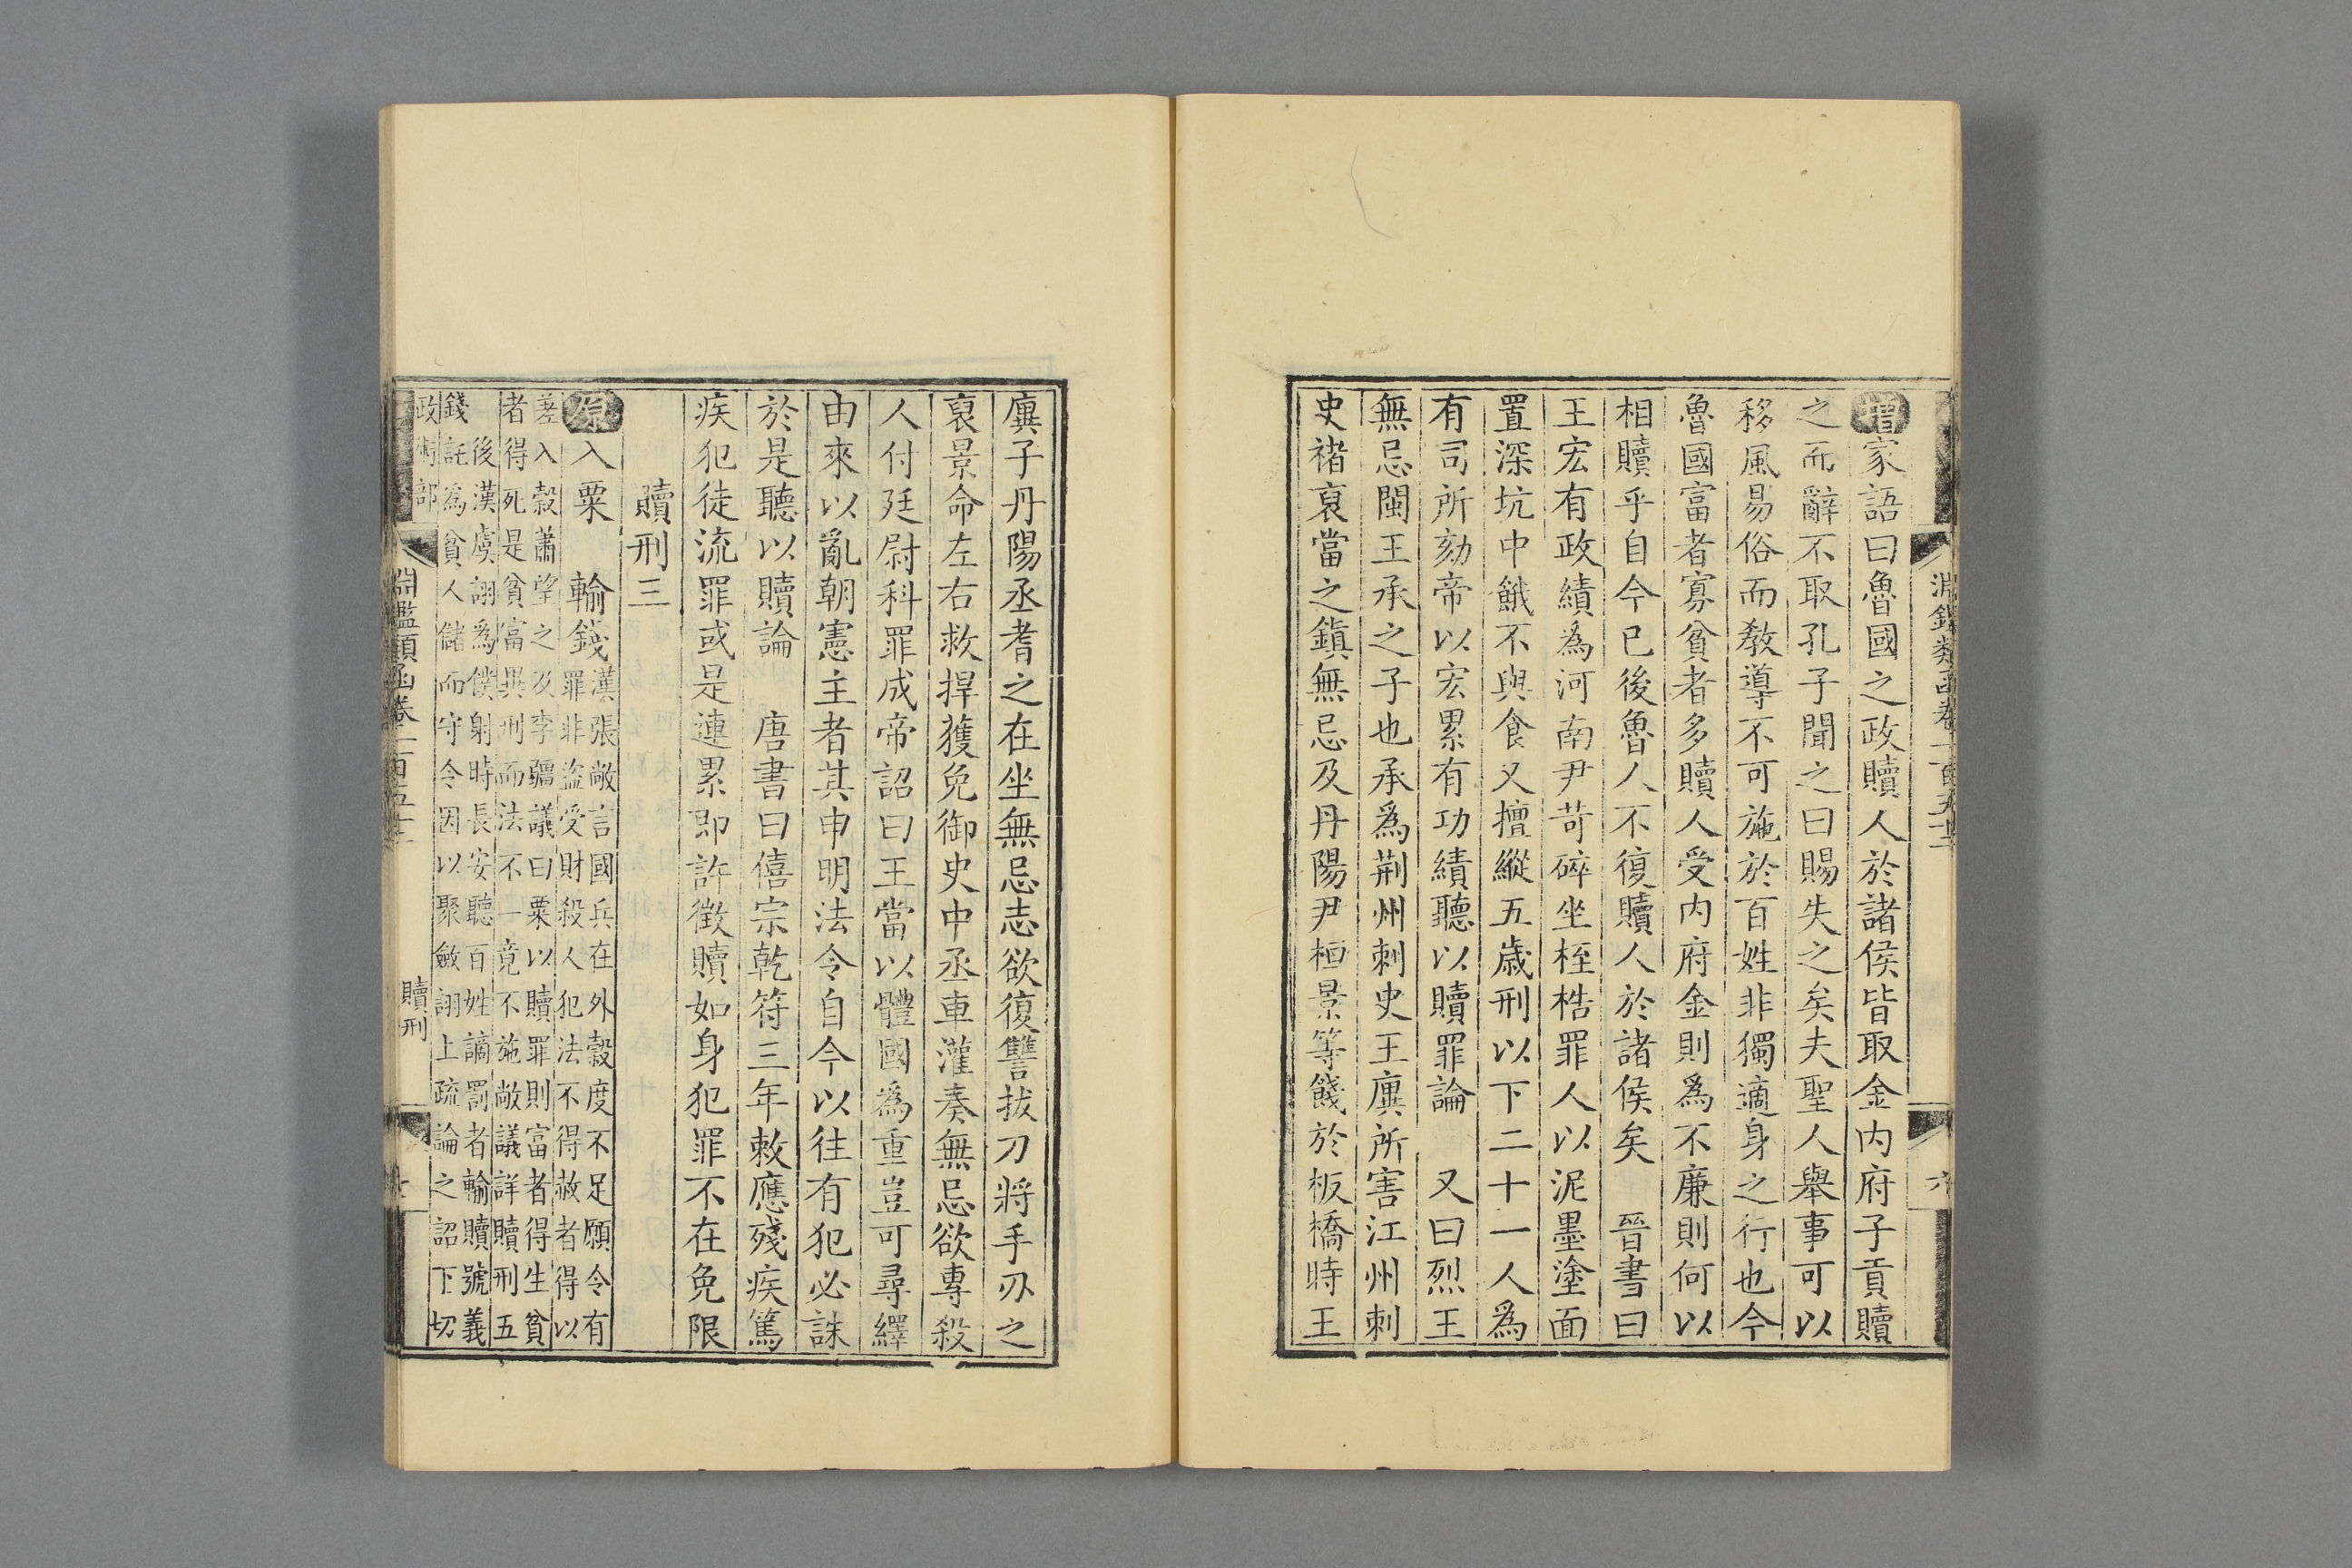 淵鑑類函卷一百五十三
六
增家語曰魯國之政贖人於諸侯皆取金内府子貢贖
之而辭不取孔子聞之曰賜失之矣夫聖人舉事可以
移風易俗而教導不可施於百姓非獨適身之行也今
魯國富者寡貧者多贖人受内府金則為不廉則何以
相贖乎自今已後魯人不復贖人於諸侯矣　晉書曰
王宏有政績為河南尹苛碎坐桎梏罪人以泥墨塗面
置深坑中餓不與食又擅縱五歲刑以下二十一人為
有司所劾帝以宏累有功績聽以贖罪論　又曰烈王
無忌閩王承之子也承為荆州刺史王廙所害江州刺
史褚裒當之鎮無忌及丹陽尹桓景等餞於板橋時王
廙子丹陽丞耆之在坐無忌志欲復讐拔刀將手刃之
裒景命左右救捍獲免御史中丞車灌奏無忌欲專殺
人付廷尉科罪成帝詔曰王當以體國為重豈可尋繹
由來以亂朝憲主者其申明法令自今以往有犯必誅
於是聽以贖論　唐書曰僖宗乾符三年敕應殘疾篤
疾犯徒流罪或是連累即許徵贖如身犯罪不在免限
贖刑三
原入粟　輸錢漢張敞言國兵在外穀度不足願令有
罪非盜受財殺人犯法不得赦者得以
差入穀蕭望之及李疆議曰粟以贖罪則富者得生貧
者得死是貧富異刑而法不一竟不施敞議詳贖刑五
後漢虞詡為僕射時長安聽百姓謫罰者輸贖號義
錢託為貧人儲而守令因以聚斂詡上疏論之詔下切
政術部
淵鑑類函卷一百五十三
贖刑